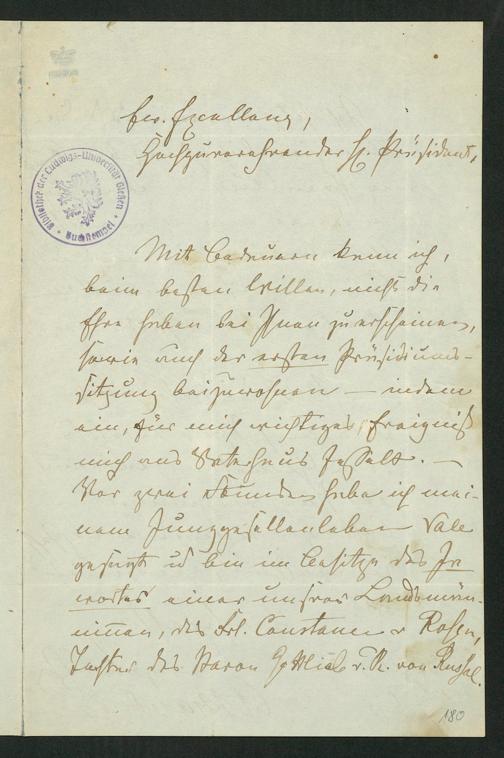 Ew. Excellenz,
Hochzuverehrender H. Präsident,
Bibliothek der Ludwigs-Universität Gießen
Buchstempel
Mit Bedauern kann ich,
beim besten Willen, nicht die
Ehre haben bei Ihnen zu erscheinen,
sowie auch der ersten Präsidiums-
sitzung beizuwohnen — indem
ein, für mich wichtiges, Ereigniß
mich ans Vaterhaus fesselt. —
Vor zwei Stunden habe ich mei-
nem Junggesellenleben Vale
gesagt u bin im Besitze des Ja
wortes einer unsrer Landsmän-
ninnen, des Frl. Constance v Rosen,
Tochter des Baron Gottlieb v. R. von
180